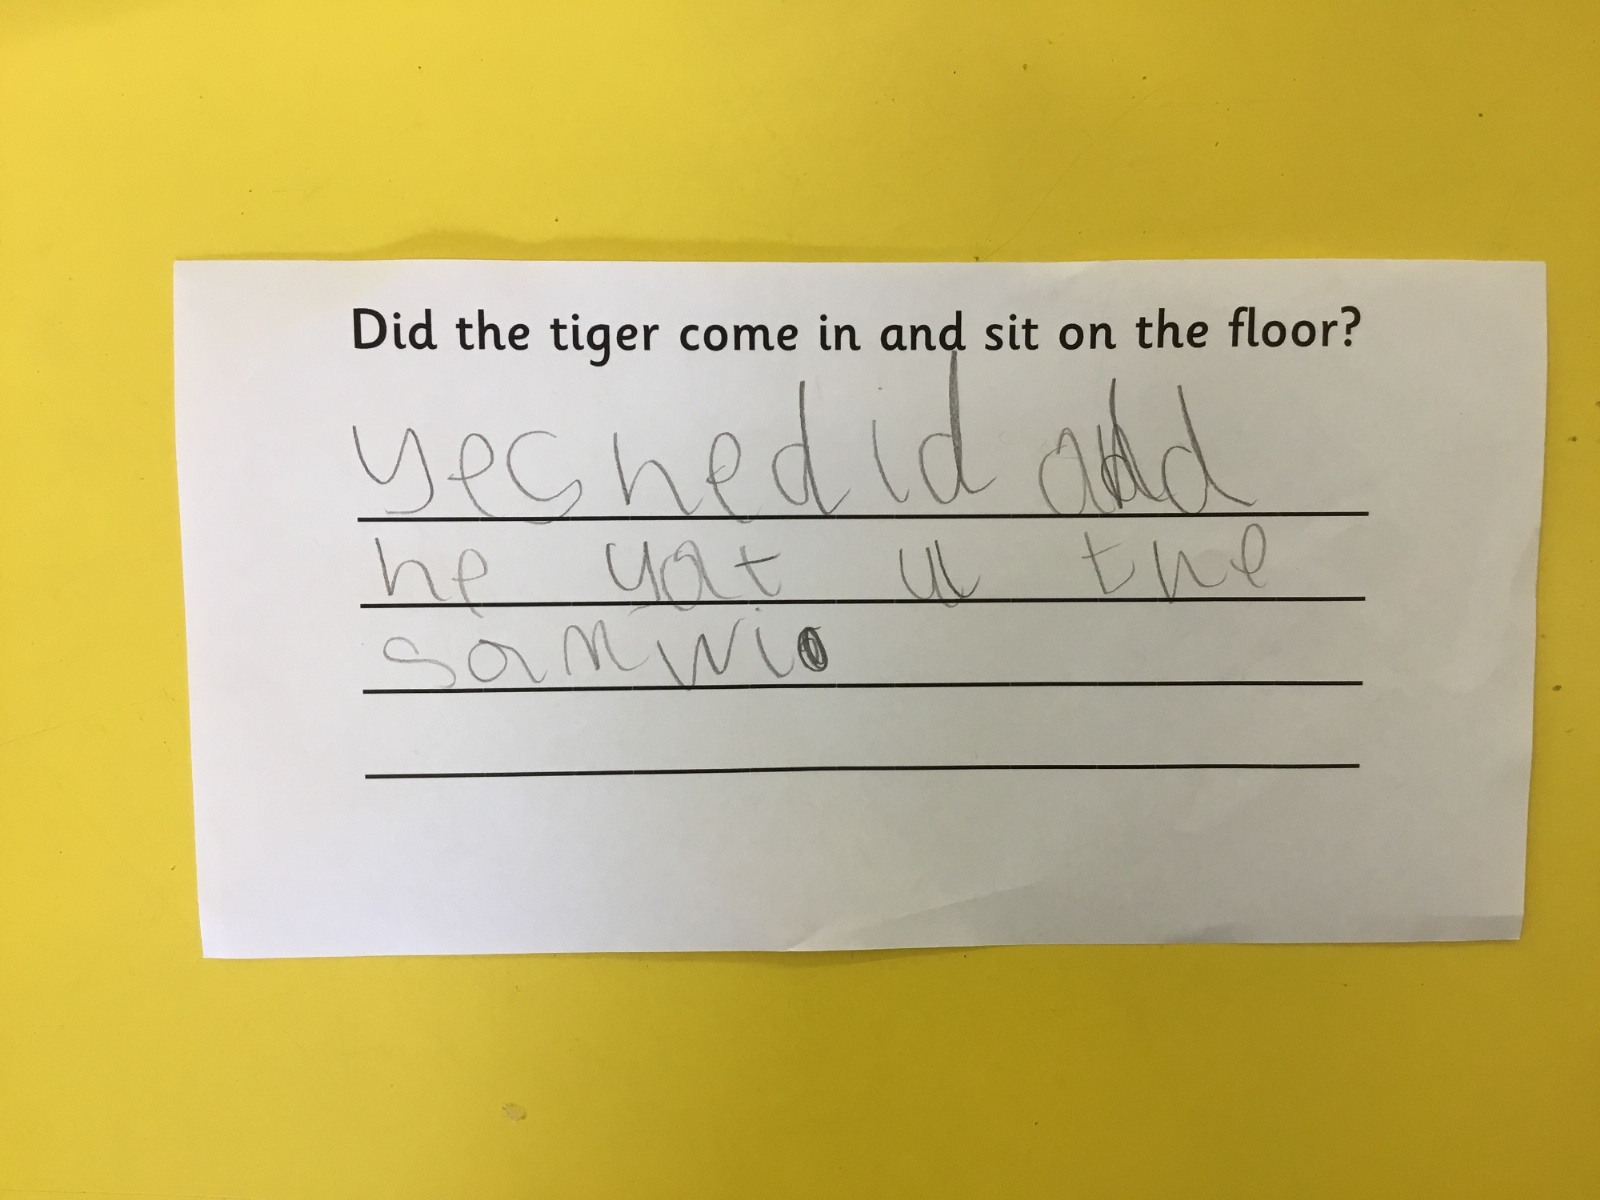 Did the tiger come in and sit on the floor?
yes he did and
he yat u the
samwi